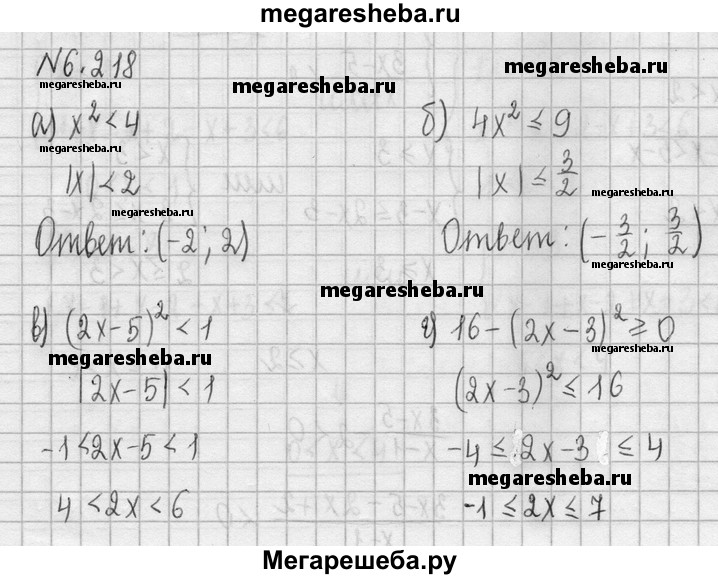 megaresheba.ru
N6.218
megaresheba.ru
megaresheba.ru
megaresheba.ru
а) x² < 4
б) 4x² ≤ 9
megaresheba.ru
|x| < 2
|x| ≤ 3/2
megaresheba.ru
megaresheba.ru
Ответ: (-2; 2)
Ответ: (-3/2; 3/2)
megaresheba.ru
megaresheba.ru
в) (2x-5)² < 1
г) 16-(2x-3)² ≥ 0
megaresheba.ru
megaresheba.ru
|2x-5| < 1
(2x-3)² ≤ 16
-1 < 2x-5 < 1
-4 ≤ 2x-3 ≤ 4
megaresheba.ru
4 < 2x < 6
-1 ≤ 2x ≤ 7
Мегарешеба.ру